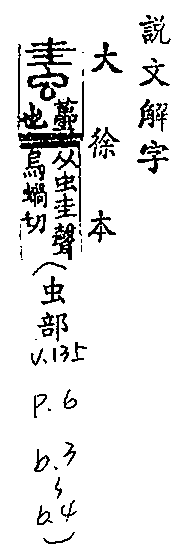 説文解字
大徐本
蠆也
从虫圭聲
烏蝸切
(虫部
v.135
p.6
b.3
s
b.4)